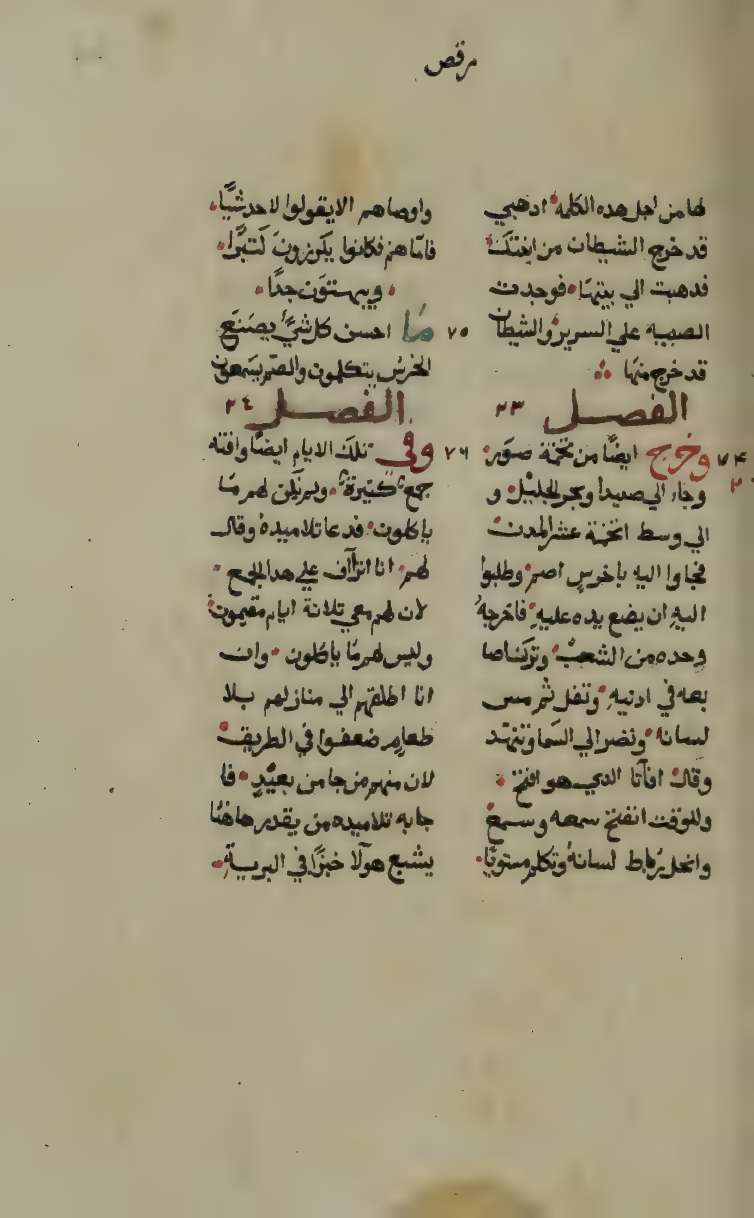 مرقص
لها من اجل هده الكلمه ادهبي
قد خرج الشيطان من ابنتك
فدهبت الي بيتها فوجدت
الصبيه علي السرير والشيطان
قد خرج منها
الفصل ٢٣
٧٤ وخرج ايضًا من تخمة صور
وجاء الي صيدا وبحر الجليل و
الي وسط اتخمة عشر المدن
فجاوا اليه باخرس اصم وطلبوا
اليه ان يضع يده عليه فاخرجه
وحده من الشعب وترك اصا
بعه في ادنيه وتفل ثم مس
لسانه ونضر الي السما وتنهد
وقال افاتا الدي هو افتح
وللوقت انفتح سمعه وسمع
وانحل رباط لسانه وتكلم مستويًا
واوصاهم الا يقولوا لاحد شيًا
فامّا هم فكانوا يكرزون
ويبهتون جدًا
٧٥ ما احسن كل شي يصنع
الخرس يتكلمون والصم يسمعون
الفصل ٢٤
٧٦ وفي تلك الايام ايضًا وافته
جمع كثيرة ولم يكن لهم ما
ياكلون فدعا تلاميده وقال
لهم انا اتراف علي هدا الجمع
لان لهم معي تلاتة ايام مقيمون
وليس لهم ما ياكلون وان
انا اطلقتهم الي منازلهم بلا
طعام ضعفوا في الطريق
لان منهم من جا من بعيد فا
جابه تلاميده من يقدر هاهنا
يشبع هولا خبزًا في البرية